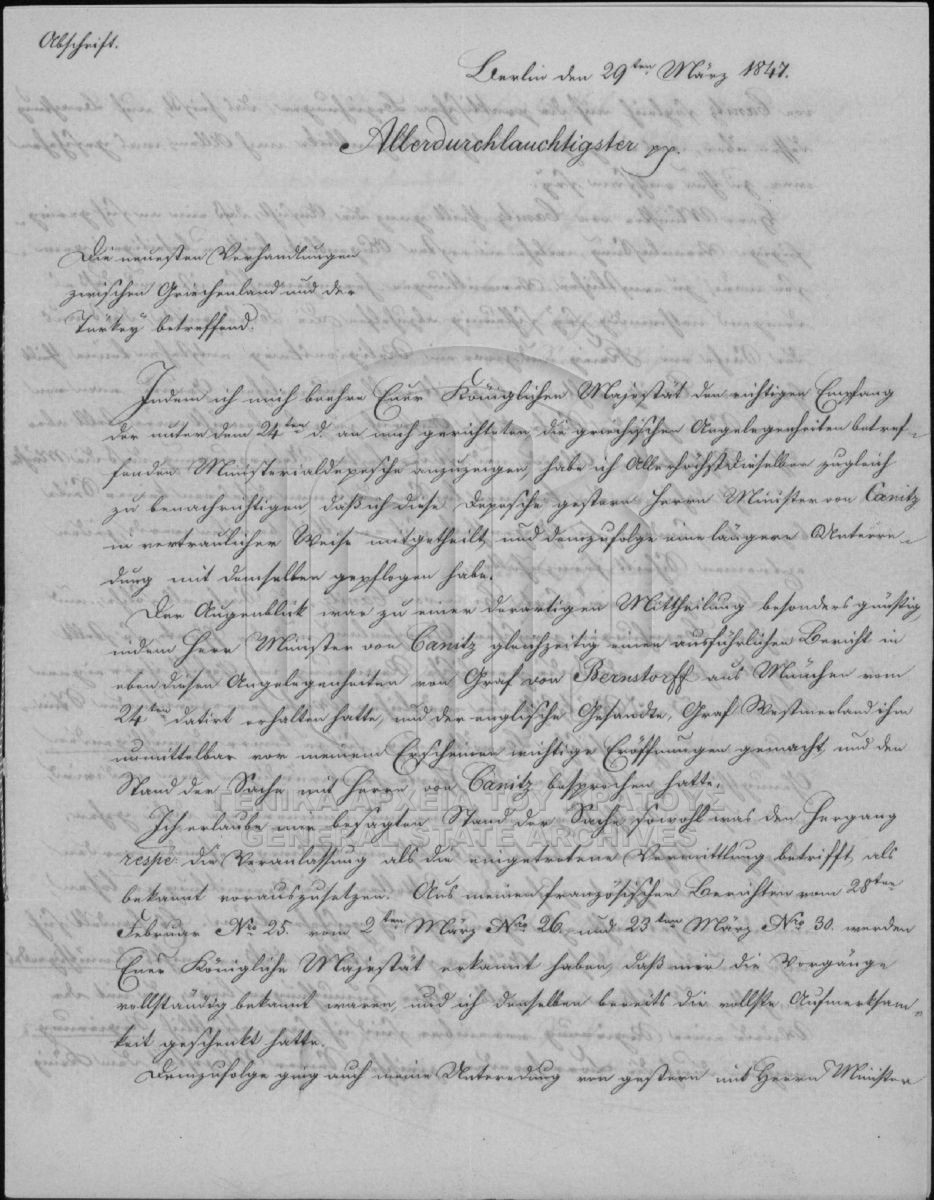 Abschrift.
Berlin den 29ten März 1847.
Allerdurchlauchtigster pp.
Die neuesten Verhandlungen
zwischen Griechenland und der
Türkey betreffend.
Indem ich mich beehre Euer Königlichen Majestät den richtigen Empfang
der unter dem 24ten d. an mich gerichteten die griechischen Angelegenheiten betref-
fenden Ministerialdepesche anzuzeigen, habe ich Allerhöchstdieselben zugleich
zu benachrichtigen, daß ich diese Depesche gestern Herrn Minister von Canitz
in vertraulicher Weise mitgetheilt, und demzufolge eine längere Unterre-
dung mit demselben gepflogen habe.
Der Augenblick war zu einer derartigen Mittheilung besonders günstig,
indem Herr Minister von Canitz gleichzeitig einen ausführlichen Bericht in
eben diesen Angelegenheiten von Graf von Bernstorff aus München vom
24ten datirt erhalten hatte, und der englische Gesandte, Graf Westmerland ihm
unmittelbar vor meinem Erscheinen wichtige Eröffnungen gemacht, und den
Stand der Sache mit Herrn von Canitz besprochen hatte.
ΓΕΝΙΚΑ ΑΡΧΕΙΑ ΤΟΥ ΚΡΑΤΟΥΣ
GENERAL STATE ARCHIVES
Ich erlaube mir besagten Stand der Sache, sowohl was den Hergang
respe: die Veranlassung als die eingetretene Vermittlung betrifft, als
bekannt vorauszusetzen. Aus meinen französischen Berichten vom 28ten
Februar No 25. vom 2ten März No 26. und 23ten März No 30. werden
Euer Königliche Majestät erkannt haben, daß mir die Vorgänge
vollständig bekannt waren, und ich denselben bereits die vollste Aufmerksam-
keit geschenkt hatte.
Demzufolge ging auch meine Unteredung von gestern mit Herrn Minister